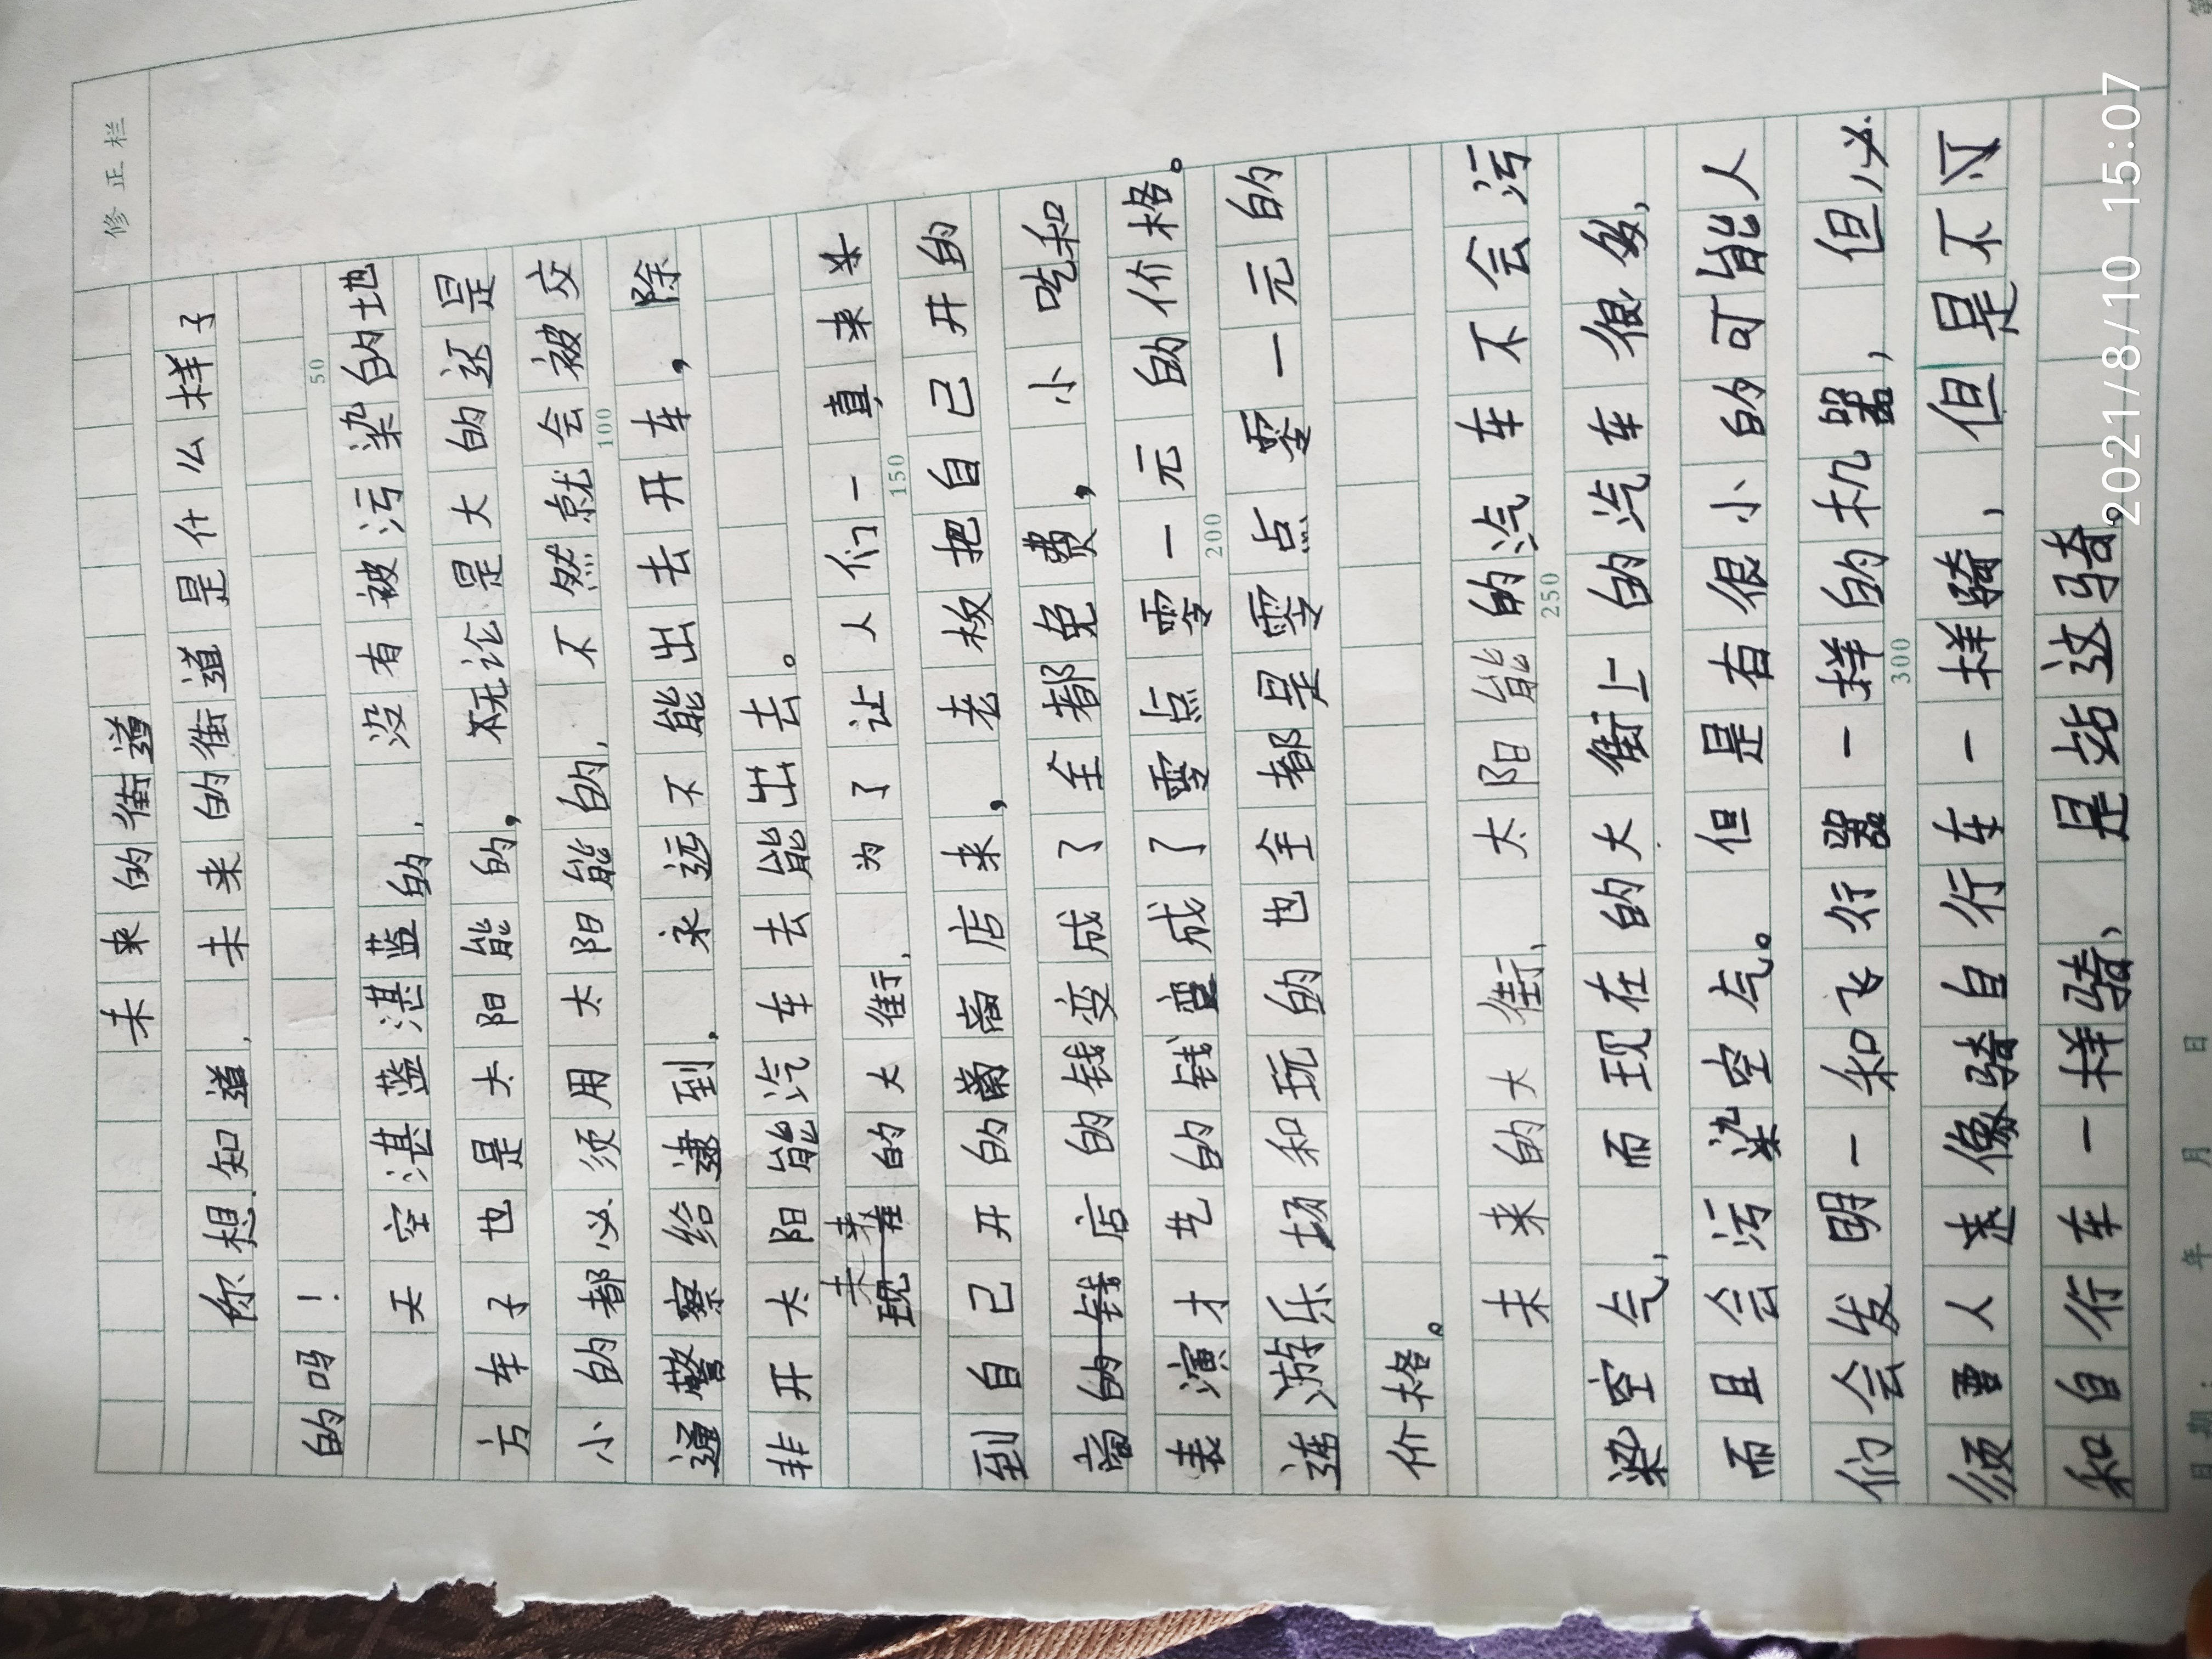 修正栏
未来的街道
你想知道，未来的街道是什么样子
的吗！
50
天空湛蓝湛蓝的，没有被污染的地
方车子也是太阳能的，无论是大的还是
小的都必须用太阳能的，不然就会被交
100
通警察给逮到，永远不能出去开车，除
非开太阳能汽车去能出去。
未来的大街，为了让人们一直来
150
到自己开的商店来，老板把自己开的
商店的钱变成了全都免费，小吃和
表演才艺的钱变成了零点零一元的价格。
200
连游乐场和玩的也全都是零点零一元的
价格。
未来的大街，太阳能的汽车不会污
250
染空气，而现在的大街上的汽车很多，
而且会污染空气。但是有很小的可能人
们会发明一和飞行器一样的机器，但必
300
须要人走像骑自行车一样骑，但是不仅
和自行车一样骑，是站这骑。
日期： 年 月 日
2021/8/10 15:07